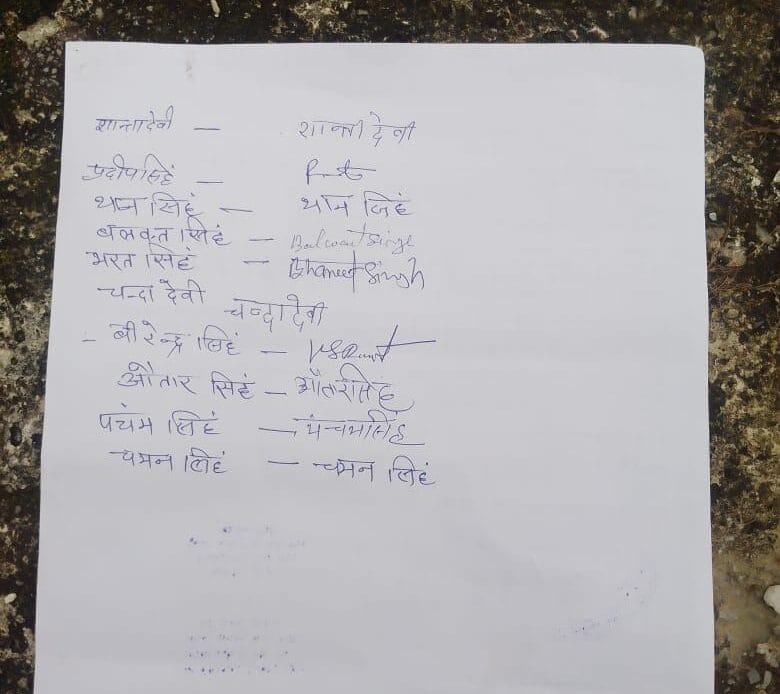 शान्तादेवी — शान्ती देवी
प्रदीपसिहं —
थान सिहं — थान सिहं
बलवन्त सिहं — Balwant Singh
भरत सिहं — Bharat Singh
चन्दा देवी चन्द्रा देवी
- बीरेन्द्र सिहं —
औतार सिहं — औतारसिहं
पंचम सिहं — पंचमसिहं
चमन सिहं — चमन सिहं